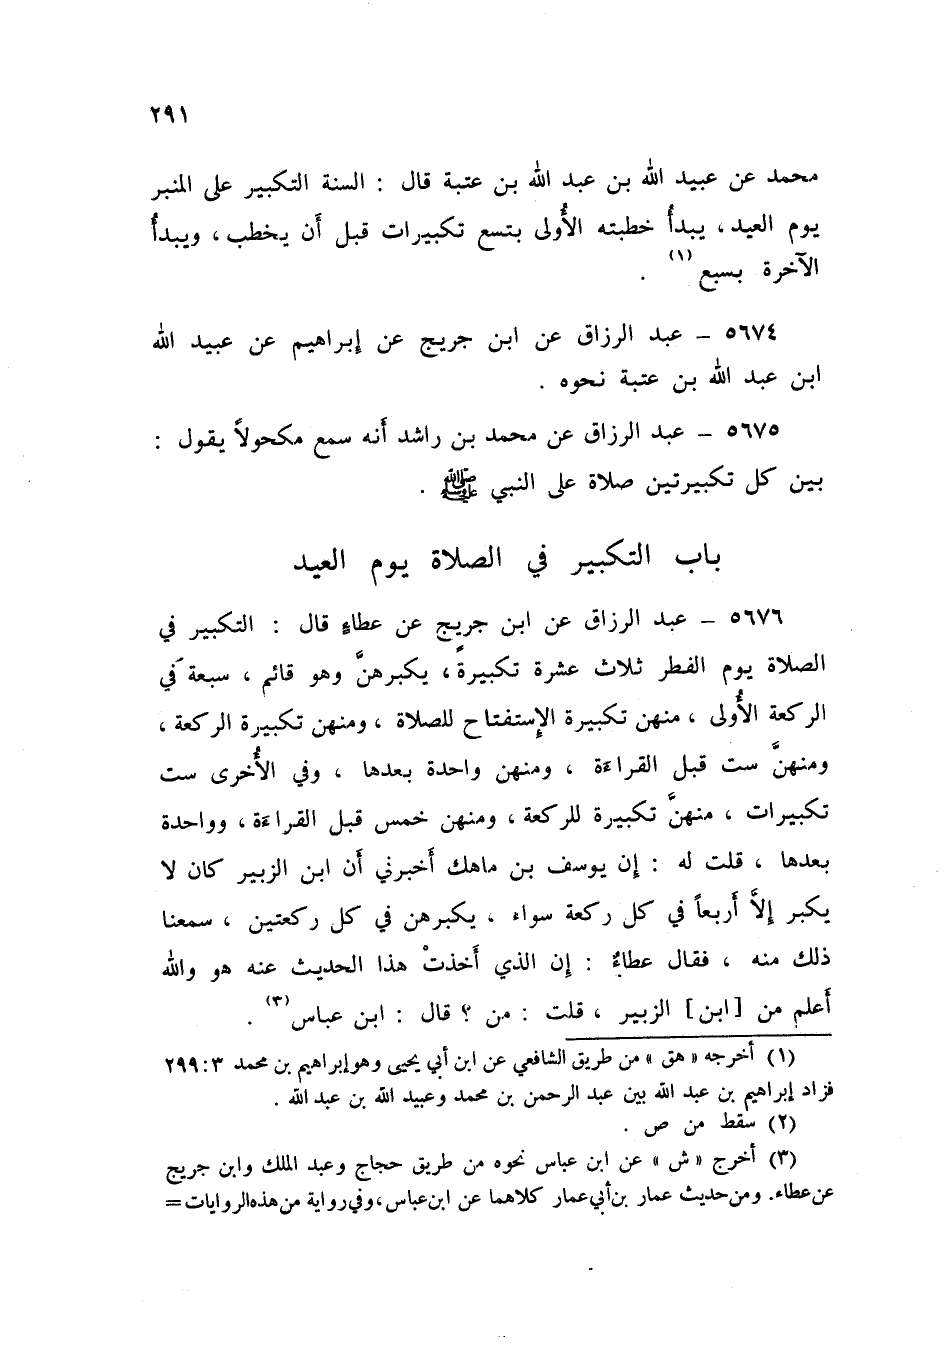 ٢٩١
محمد عن عبيد الله بن عبد الله بن عتبة قال : السنة التكبير على المنبر
يوم العيد ، يبدأُ خطبته الأُولى بتسع تكبيرات قبل أَن يخطب ، ويبدأُ
الآخرة بسبع (١) .
٥٦٧٤ – عبد الرزاق عن ابن جريج عن إِبراهيم عن عبيد الله
ابن عبد الله بن عتبة نحوه .
٥٦٧٥ – عبد الرزاق عن محمد بن راشد أَنه سمع مكحولاً يقول :
بين كل تكبيرتين صلاة على النبي ﷺ .
باب التكبير في الصلاة يوم العيد
٥٦٧٦ – عبد الرزاق عن ابن جريج عن عطاءٍ قال : التكبير في
الصلاة يوم الفطر ثلاث عشرة تكبيرةً ، يكبرهنَّ وهو قائم ، سبعة في
الركعة الأُولى ، منهن تكبيرة الإِستفتاح للصلاة ، ومنهن تكبيرة الركعة ،
ومنهنَّ ست قبل القراءة ، ومنهن واحدة بعدها ، وفي الأُخرى ست
تكبيرات ، منهنَّ تكبيرة للركعة ، ومنهن خمس قبل القراءة ، وواحدة
بعدها ، قلت له : إِن يوسف بن ماهك أَخبرني أَن ابن الزبير كان لا
يكبر إِلاَّ أَربعاً في كل ركعة سواء ، يكبرهن في كل ركعتين ، سمعنا
ذلك منه ، فقال عطاءٌ : إِن الذي أَخذتْ هذا الحديث عنه هو والله
أَعلم من [ابن] الزبير ، قلت : من ؟ قال : ابن عباس (٣) .
(١) أخرجه « هق » من طريق الشافعي عن ابن أبي يحيى وهو إبراهيم بن محمد ٣ : ٢٩٩
فزاد إبراهيم بن عبد الله بين عبد الرحمن بن محمد وعبيد الله بن عبد الله .
(٢) سقط من ص .
(٣) أخرج « ش » عن ابن عباس نحوه من طريق حجاج وعبد الملك وابن جريج
عن عطاء. ومن حديث عمار بن أبي عمار كلاهما عن ابن عباس ، وفي رواية من هذه الروايات =